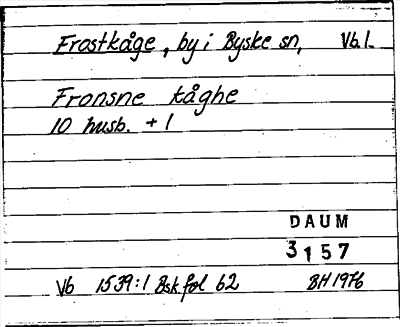 Frostkåge, by i Byske sn, Vb.l.
Fronsne kåghe
10 husb. + 1
DAUM
3157
Vb 1539:1 Bsk fol 62 BH 1976